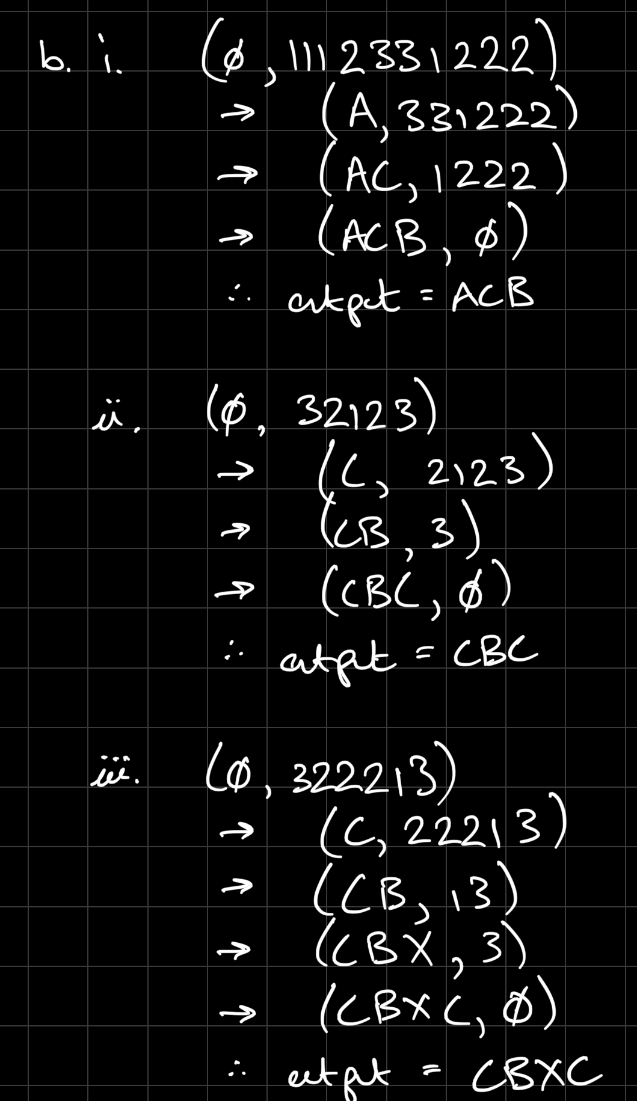 b. i. (ϕ, 1112331222)
→ (A, 331222)
→ (AC, 1222)
→ (ACB, ϕ)
∴ output = ACB
ii. (ϕ, 32123)
→ (C, 2123)
→ (CB, 3)
→ (CBC, ϕ)
∴ output = CBC
iii. (ϕ, 322213)
→ (C, 22213)
→ (CB, 13)
→ (CBX, 3)
→ (CBXC, ϕ)
∴ output = CBXC